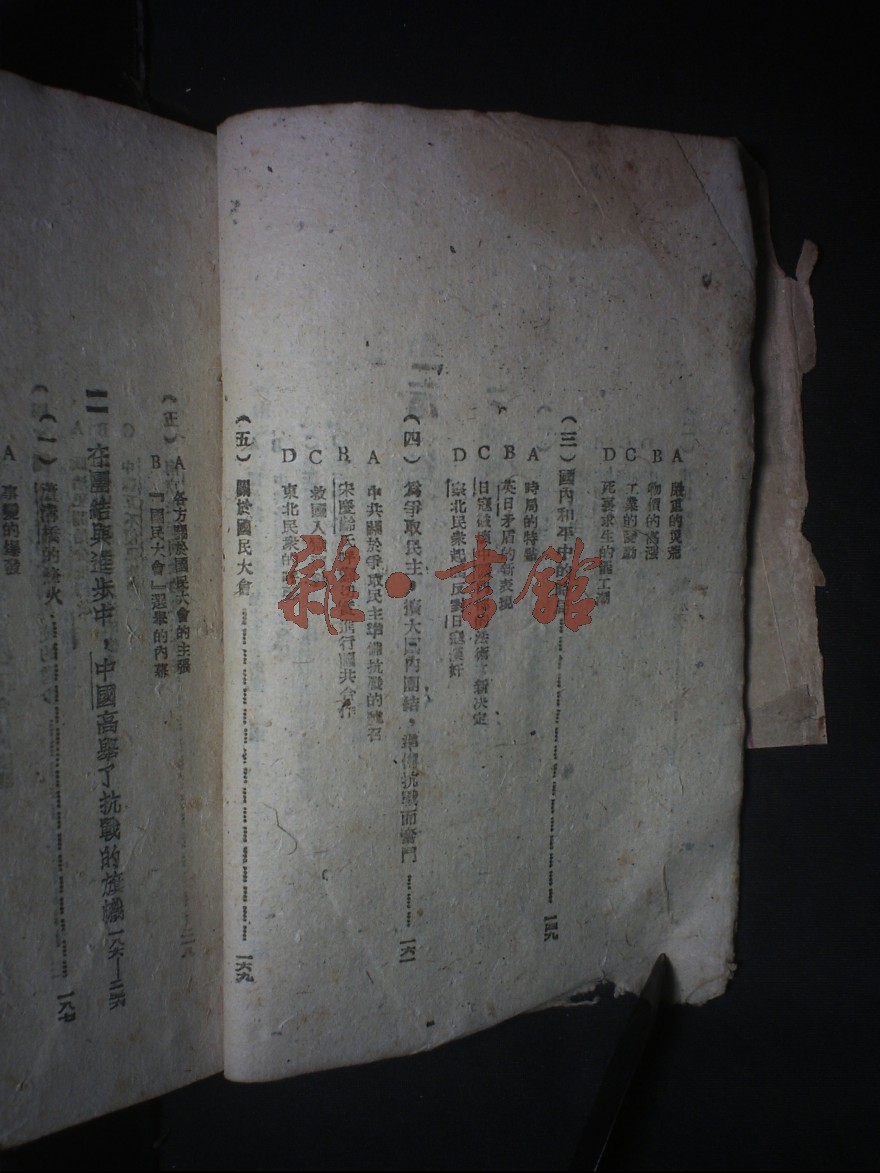 A 嚴重的災荒
B 物價的高漲
C 工業的
D 死裏求生的罷工潮
(三)國內和平中的 一四九
A 時局的特點
B 英日矛盾的新表現
C 日寇 的法術・新決定
D 民衆 反對日寇漢奸
(四)爲爭取民主,擴大國內團結,準備抗戰而奮鬥 一六一
A 中共關於爭取民主準備抗戰的號召
B 宋慶齡 進行國共合作
C 救國
D 東北民衆的
(五)關於國民大會 一六九
A 各方關於國民大會的主張
B 『國民大會』選舉的內幕
二 在團結與進步中,中國高舉了抗戰的旗幟
(一) 的烽火 一八七
A 事變的爆發
雜・書館